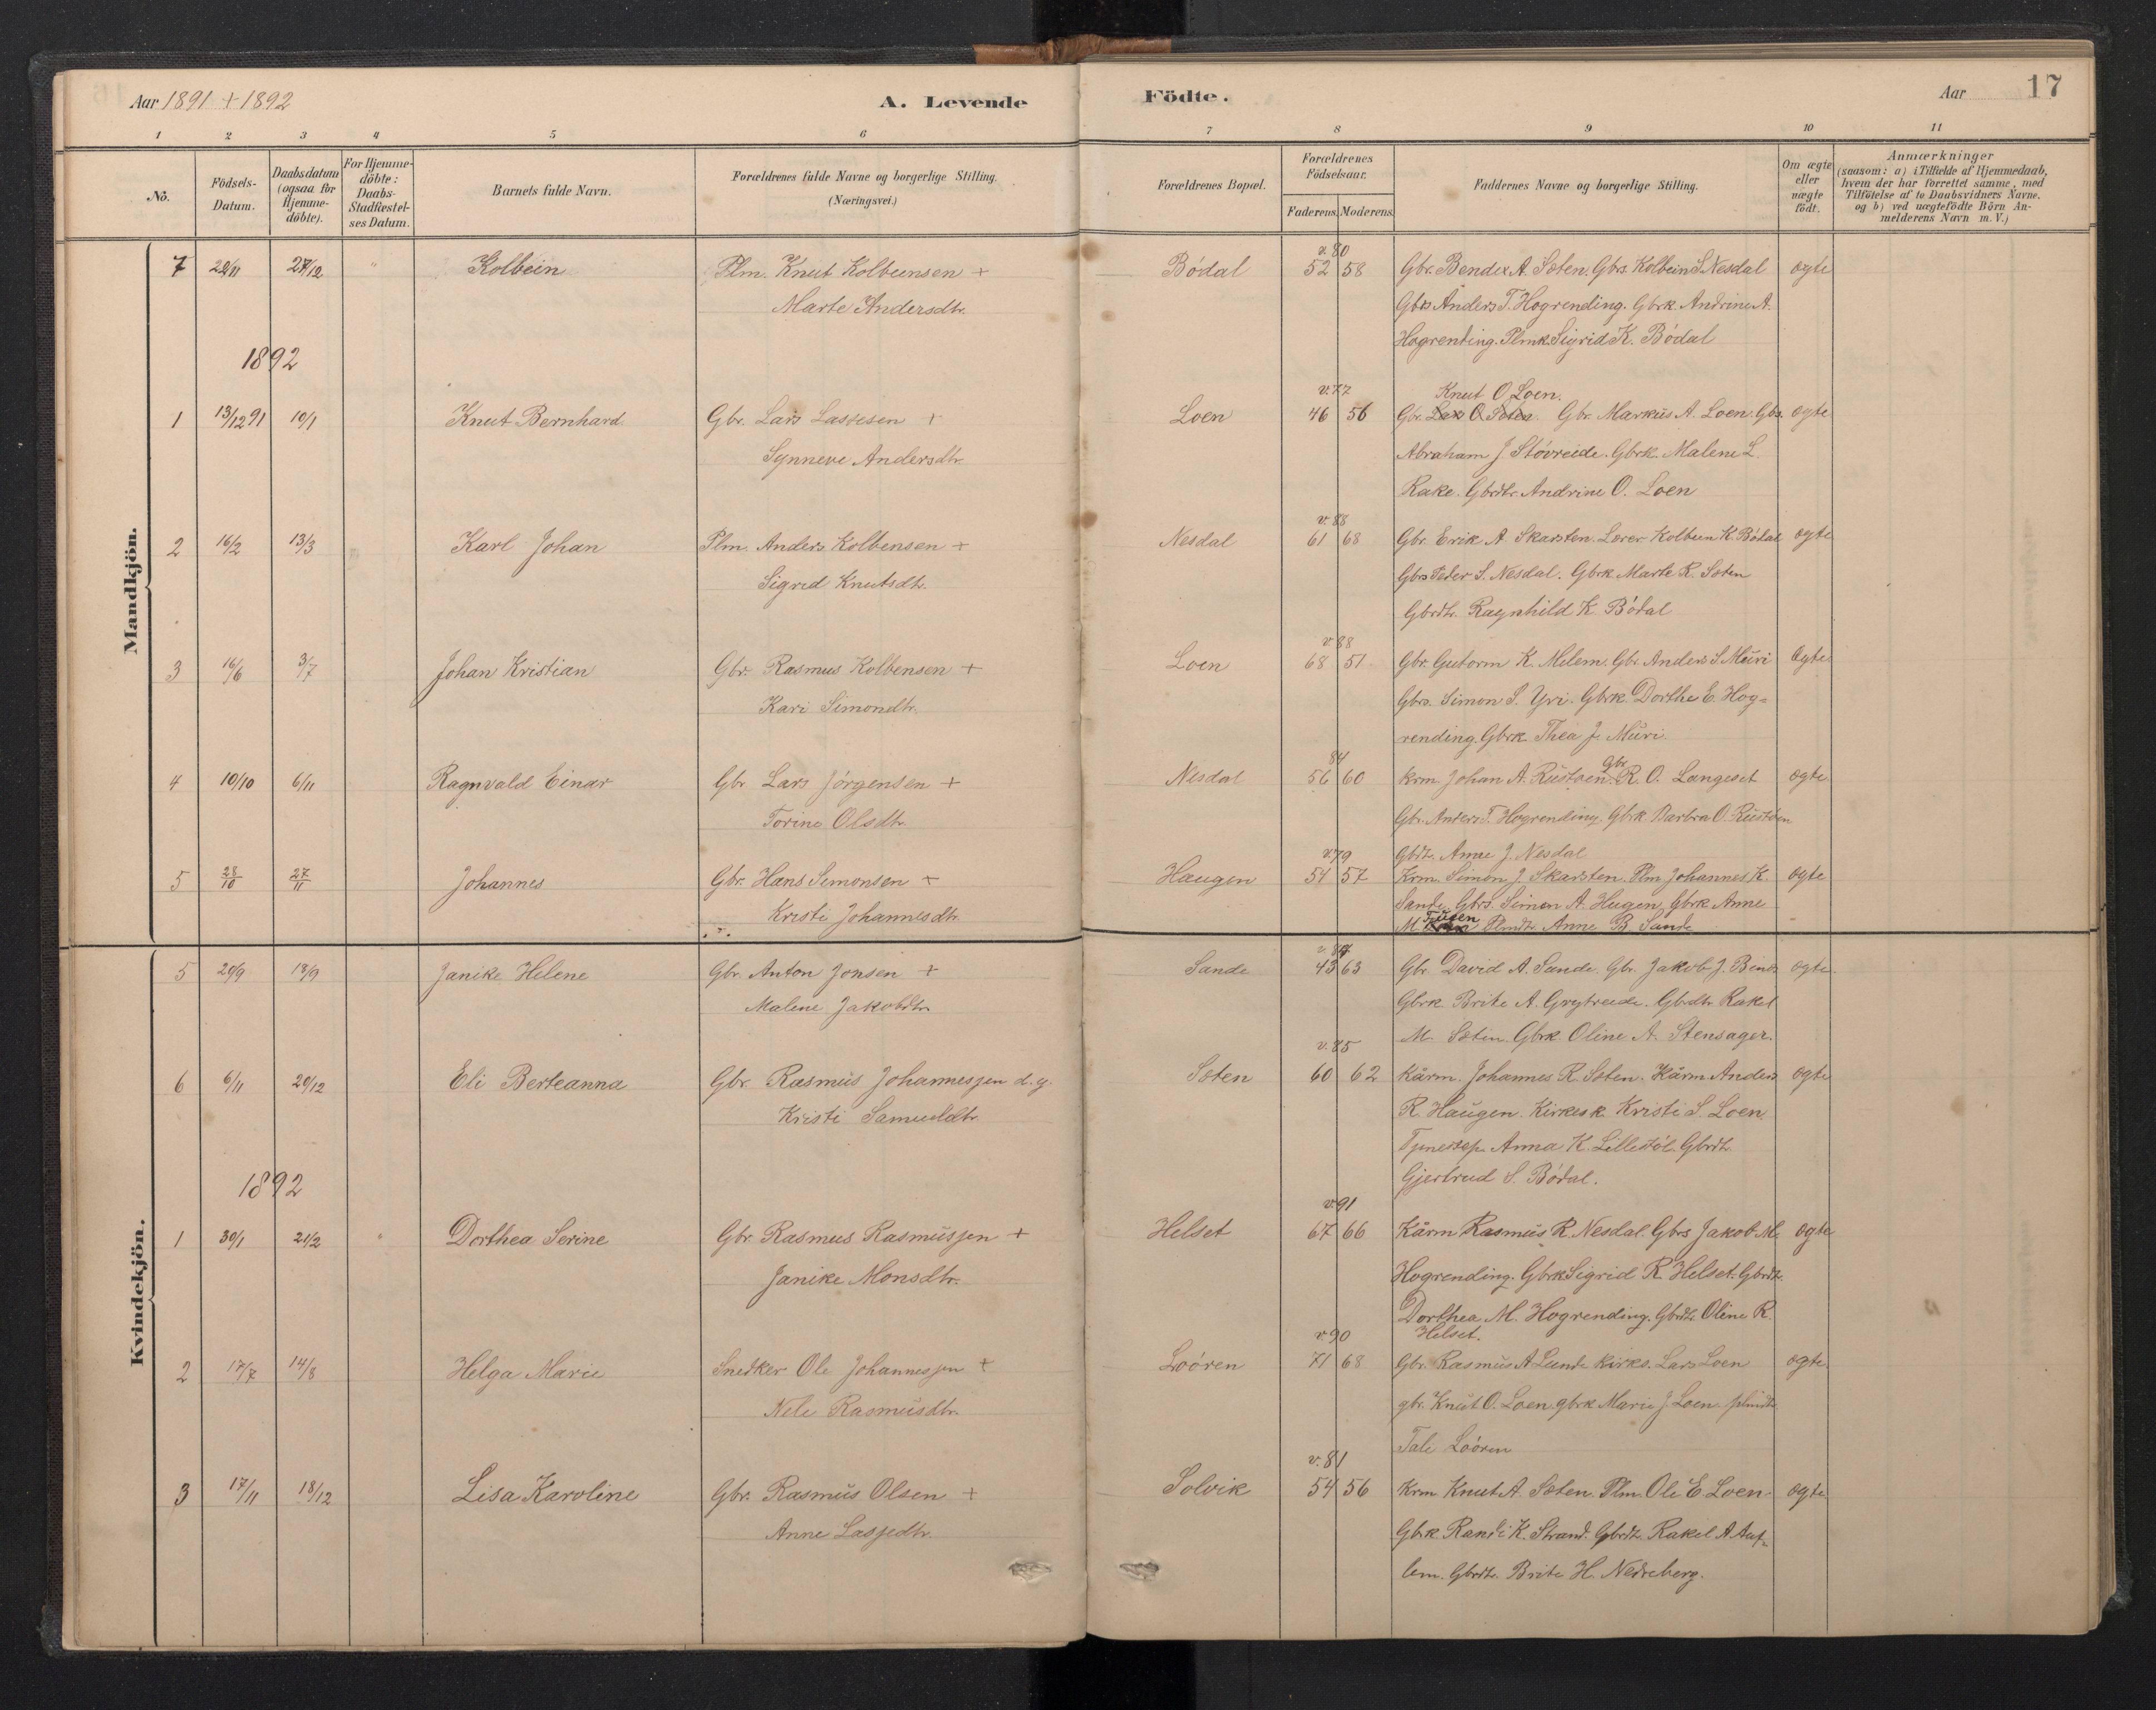 Aar 1891 + 1892
A. Levende Födte.
Aar 17
1 2 3 4 5 6 7 8 9 10 11
No.
Födsels-Datum.
Daabsdatum (ogsaa for Hjemme-döbte).
For Hjemme-döbte: Daabs-Stadfæstel-ses Datum.
Barnets fulde Navn.
Forældrenes fulde Navne og borgerlige Stilling. (Næringsvei.)
Forældrenes Bopæl.
Forældrenes Födselsaar.
Faderens. Moderens.
Faddernes Navne og borgerlige Stilling.
Om ægte eller uægte födt.
Anmærkninger (saasom: a) i Tilfælde af Hjemmedaab, hvem der har forrettet samme, med Tilföielse af to Daabsvidners Navne, og b) ved uægtefödte Börn Anmelderens Navn m. V.)
Mandkjön.
v. 80
7 22/11 27/12 " Kolbein Plm. Knut Kolbeinsen + Bódal 52 58 Gbr. Bendix A. Sæten. Gbrs. Kolbein S. Nesdal ægte
Marte Andersdtr. Gbrs Anders T. Hogrending. Gbrk. Andrine A.
Hogrending. Plmk Sigrid K. Bódal
1892
v. 77 Knut O. Loen.
1 13/12 91 10/1 Knut Bernhard Gbr. Lars Lassesen + Loen 46 56 Gbr. Gbr. Markus A. Loen. Gbs. ægte
Synneve Andersdtr. Abraham J. Stóvreide. Gbrk. Malene L.
Rake. Gbrdtr. Andrine O. Loen
v. 88
2 16/2 13/3 Karl Johan Plm. Anders Kolbensen + Nesdal 61 68 Gbr. Erik A Skarsten. Lærer Kolbein K Bódal ægte
Sigrid Knutsdtr. Gbrs Peder S. Nesdal. Gbrk Marte R. Sæten
Gbrdtr. Ragnhild K Bódal
v. 88
3 16/6 3/7 Johan Kristian Gbr. Rasmus Kolbensen + Loen 68 51 Gbr. Gutorm K. Melem. Gbr. Anders S. Muri ægte
Kari Simondtr. Gbrs. Simon S. Yri. Gbrk. Dorthe E. Hog=
rending. Gbrk. Thea J. Muri.
84 Gbr.
4 10/10 6/11 Ragnvald Einar Gbr Lars Jórgensen + Nesdal 56 60 Krm Johan A. Rustøen. R. O. Langeset ægte
Torine Olsdtr. Gbr. Anders T. Hogrending. Gbrk Barbra O. Rustóen
v. 79 Gbrdtr. Anne J. Nesdal
5 28/10 27/11 Johannes Gbr. Hans Simonsen + Haugen 54 57 Krm. Simon J. Skarsten. Plm Johannes K. ægte
Kristi Johannesdtr. Sande. Gbrs. Simon A. Hugen. Gbrk Anne
M Tusen Plmdtr. Anne B. Sande
Kvindekjön.
5 20/9 18/9 Janike Helene Gbr. Anton Jonsen + Sande 43 63 Gbr. David A. Sande. Gbr. Jakob J. ægte
Malene Jakobdtr. Gbrk. Brite A. Grytreide. Gbrdtr. Rakel
v. 85 M. Sæten. Gbrk. Oline A. Stensager.
6 6/11 20/12 Eli Berteanna Gbr. Rasmus Johannessen d.y. Sæten 60 62 Kårm. Johannes R. Sæten. Kårm Anders ægte
Kristi Samueldtr. R. Haugen. Kirkes k. Kristi S. Loen
Anna K. Lillestól. Gbrdtr.
Gjertrud S. Bódal.
1892
v. 91
1 30/1 21/2 " Dorthea Serine Gbr. Rasmus Rasmussen + Helset 67 66 Kårm Rasmus R. Nesdal. Gbrs Jakob M. ægte
Janike Monsdtr. Hogrending. Gbrk Sigrid R. Helset. Gbrdtr.
Dorthea M. Hogrending. Gbrdtr. Oline R.
v. 90 Helset.
2 17/7 14/8 Helga Marie Snedker Ole Johannessen + Loóren 71 68 Gbr. Rasmus A Lunde Kirks. Lars Loen ægte
Nele Rasmusdtr. gbr. Knut O. Loen. gbrk Marie J. Loen. plmdtr.
Tale Loóren
v. 81
3 17/11 18/12 Lisa Karoline Gbr. Rasmus Olsen + Solvik 54 56 Krm Knut A. Sæten. Plm. Ole E. Loen. ægte
Anne Lassedtr. Gbrk Randi K. Strand. Gbrdtr. Rakel A Auf=
lem. Gbrdtr. Brite H. Nedreberg.